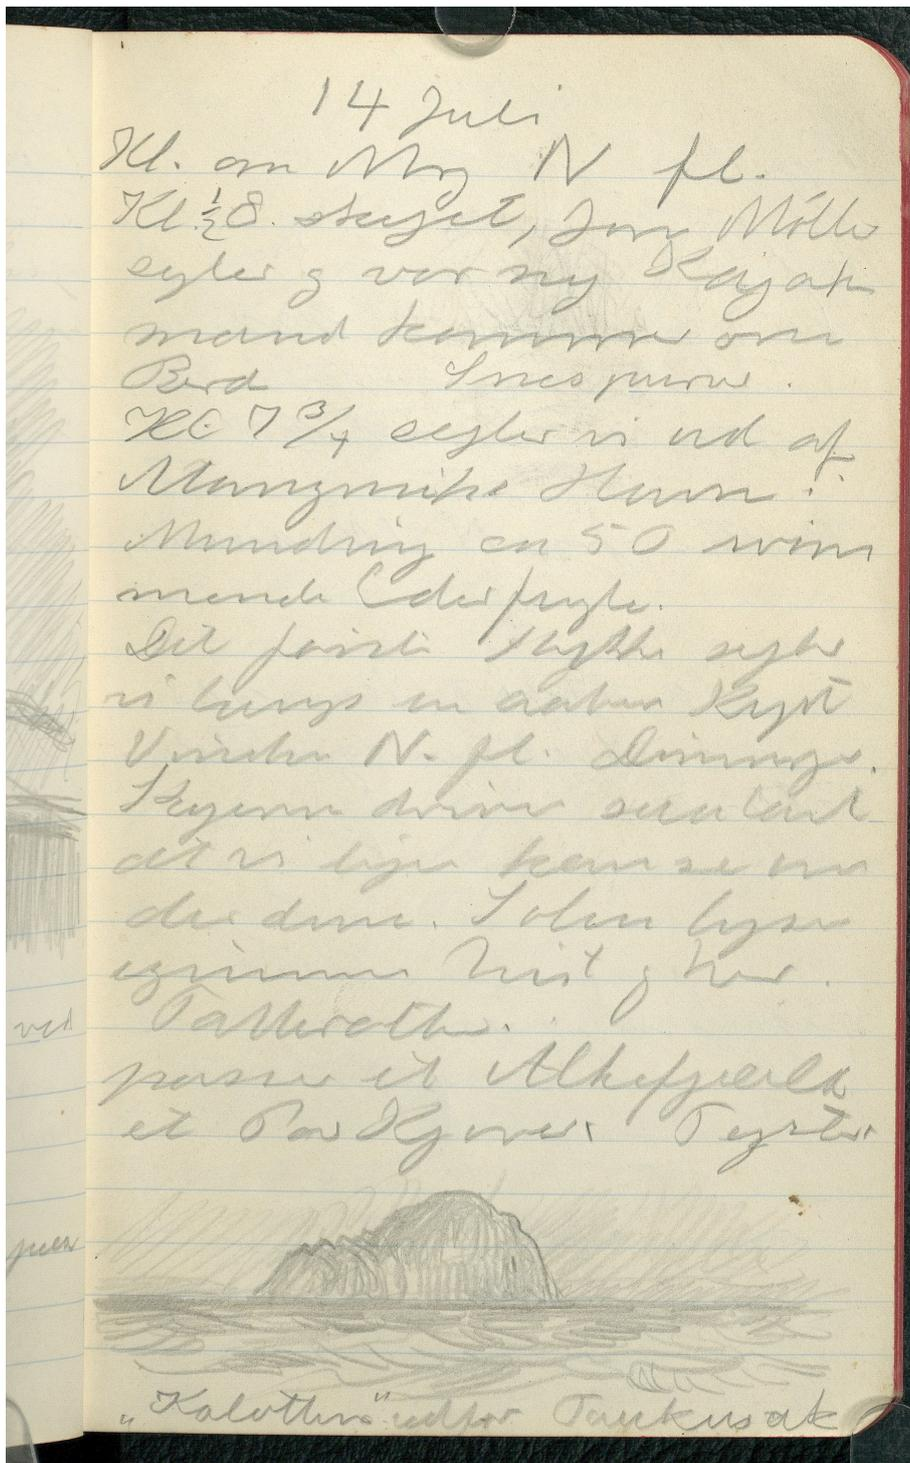 14 Juli
Kl. om Mrg N fl.
Kl ½8. skyet, Jens Möller
sejler g vor ny Kajak
mand kommer om
Bord Snespurve.
Kl. 7 3/4 sejler vi ud af
Havn i
Munding ca 50 svöm
mende Ederfugle.
Det förste Stykke sejler
vi langs en aaben Kyst
Vinden N. fl. Diminge.
Skyerne driver saa lavt
at vi lige kan se un
der dem. Solen lyser
igennem hist g her.
Tatterater.
passer et Alkefjæld
et Par Kjover. Tejster
ved
"Kalotten" udfor